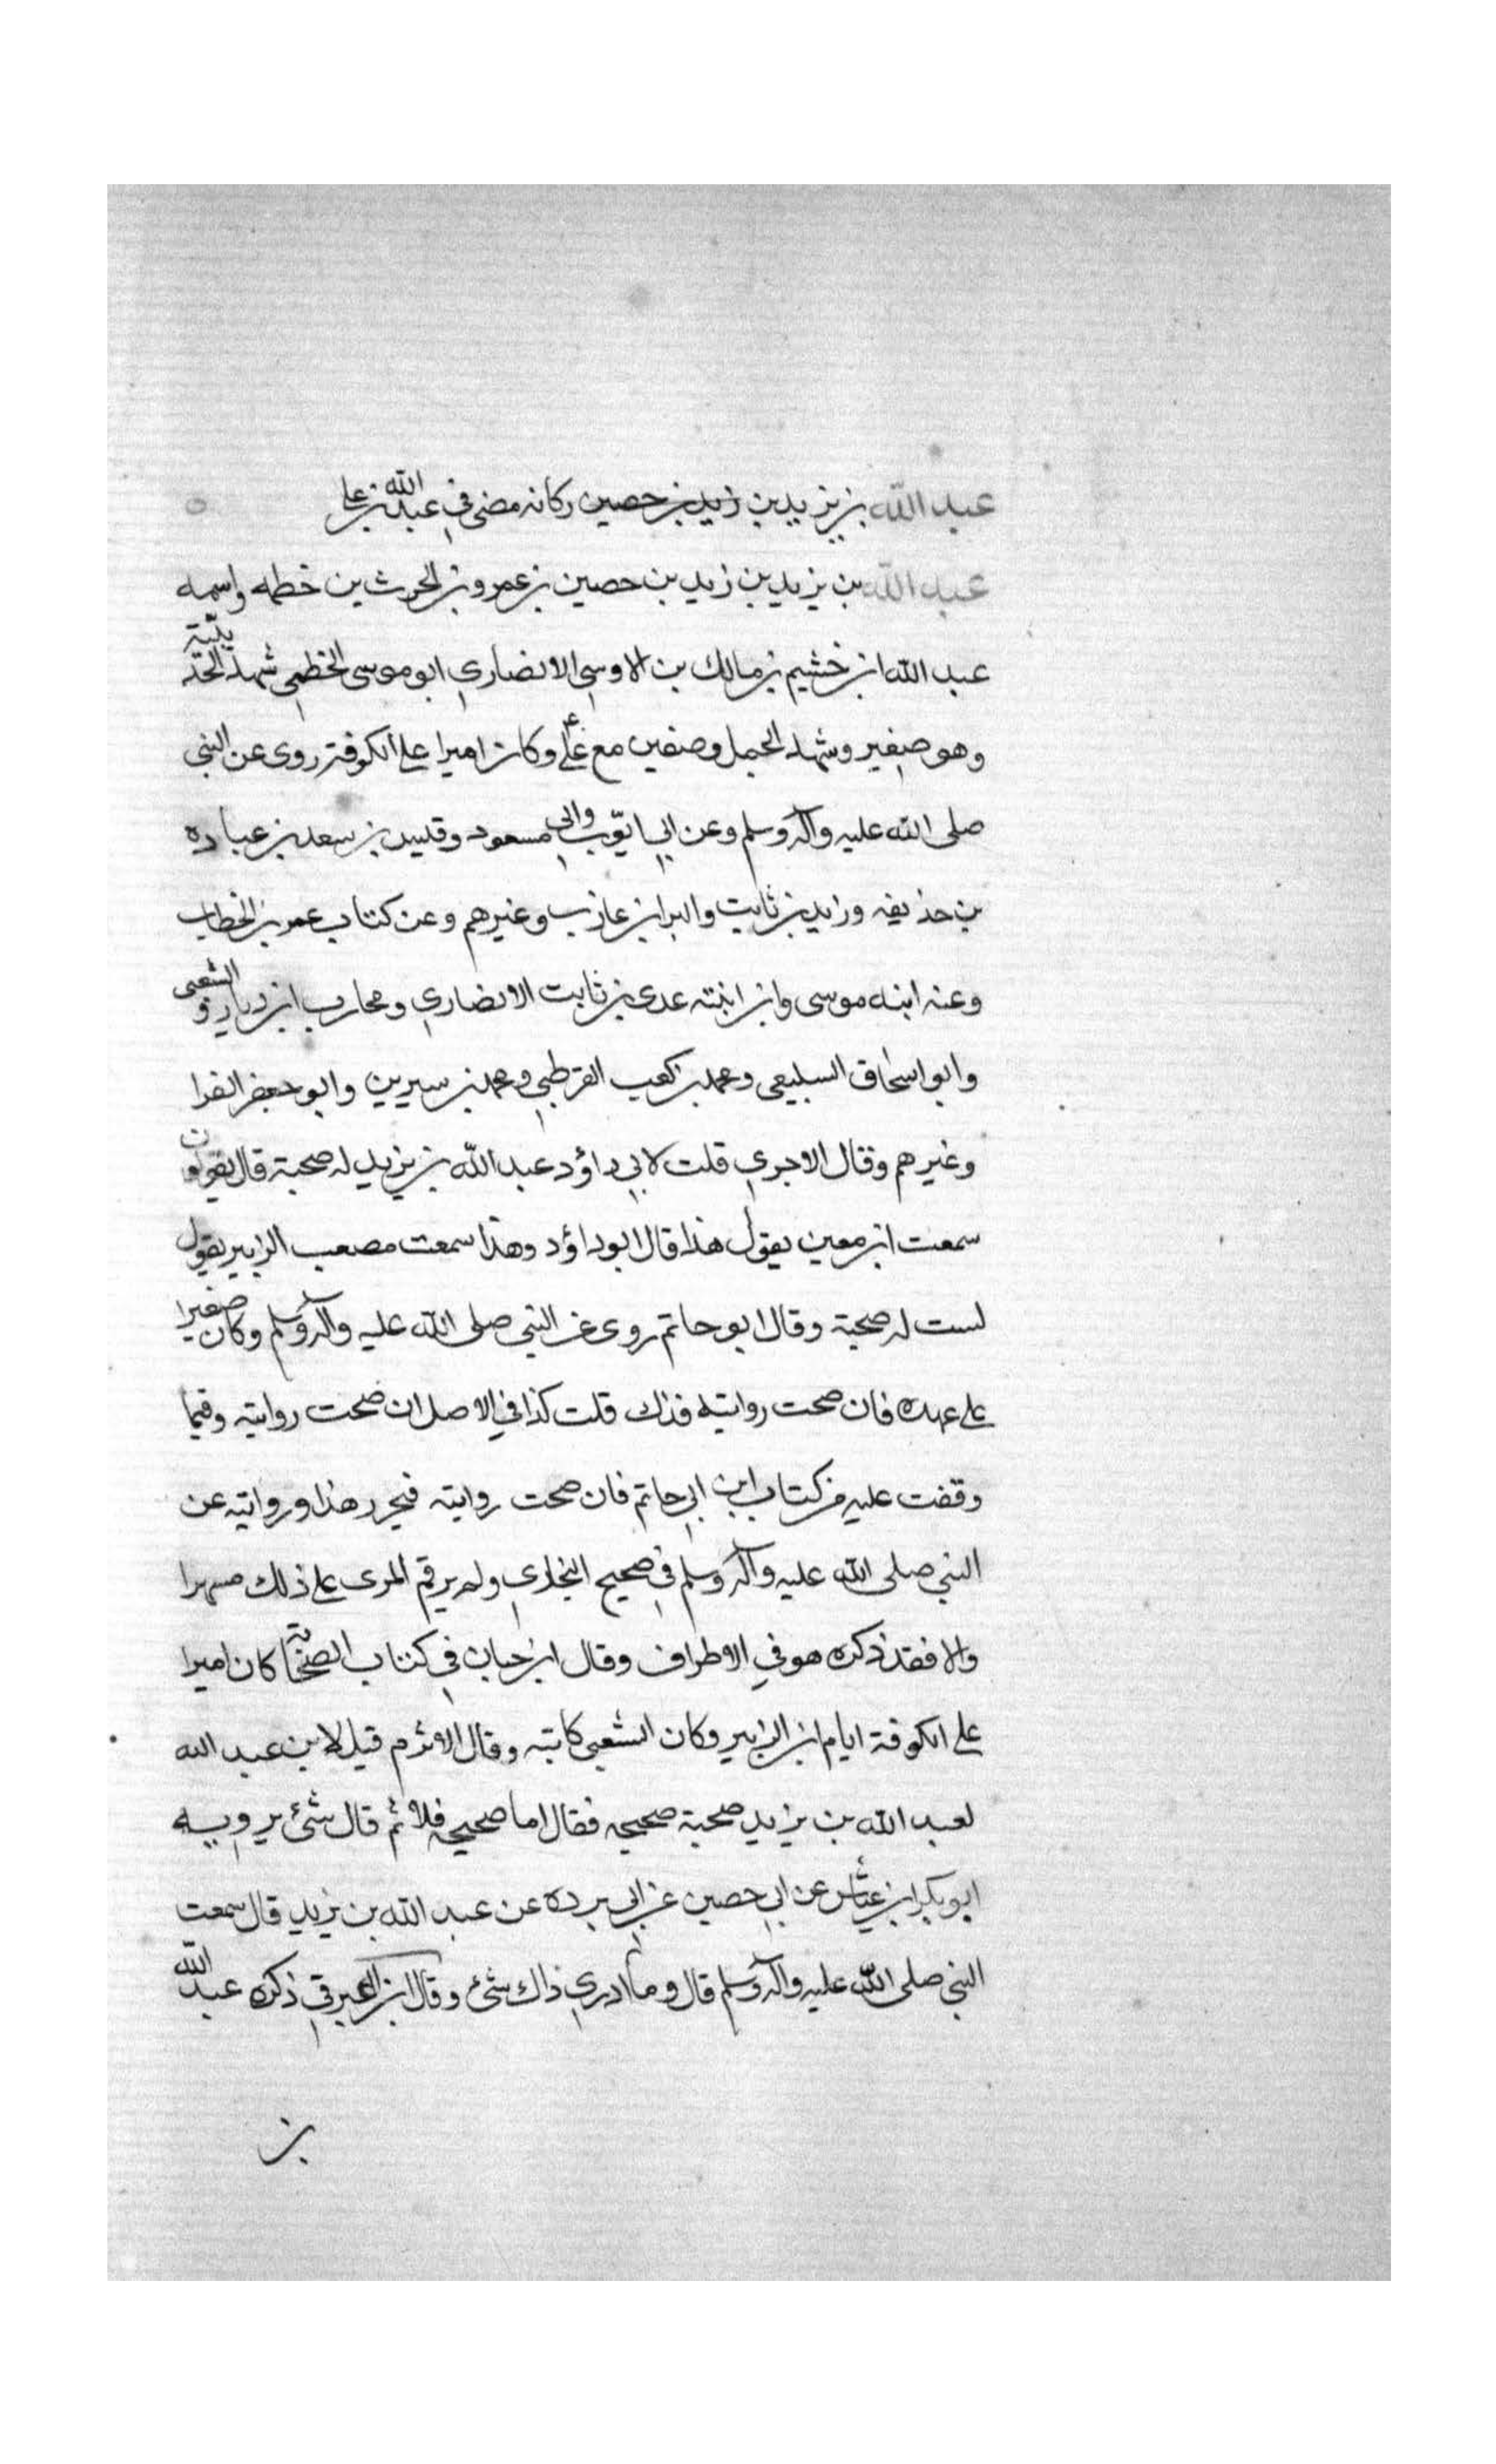 عبد الله بن يزيد بن زيد بن حصين ركانه مضى في عبد الله بن علي
عبد الله بن يزيد بن زيد بن حصين بن عمرو بن الحرث بن خطمه واسمه
عبد الله ابن خشيم بن مالك بن الاوسي الانصاري ابو موسى الخطمي شهد الحديبية
وهو صغير وشهد الجمل وصفين مع علي وكان اميرا على الكوفة روى عن النبي
صلى الله عليه وآله وسلم وعن ابي ايوب وابي مسعود وقيس بن سعد بن عباده
بن حذيفه وزايد بن ثابت والبرا بن عازب وغيرهم وعن كتاب عمر بن الخطاب
وعنه ابنه موسى وابن ابنته عدي بن ثابت الانصاري ومحارب ابن دثار والشعبي
وابو اسحاق السبيعي ومحمد بن كعب القرظي ومحمد بن سيرين وابو جعفر الفرا
وغيرهم وقال الاجري قلت لابي داؤد عبد الله بن يزيد له صحبة قال يقولون
سمعت ابن معين يقول هذا قال ابو داؤد وهذا سمعت مصعب الزبير يقول
لست له صحبة وقال ابو حاتم روى عن النبي صلى الله عليه وآله وسلم وكان صغيرا
على عهده فان صحت روايته فذاك قلت كذا في الاصل ان صحت روايته وفيما
وقفت عليه من كتاب ابن ابي حاتم فان صحت روايته فيحرر هذا وروايته عن
النبي صلى الله عليه وآله وسلم في صحيح البخاري ولم يرقم المزى على ذلك
والا فقد ذكره هو في الاطراف وقال ابن حبان في كتاب الصحابة كان اميرا
على الكوفة ايام ابن الزبير وكان الشعبي كاتبه وقال الاثرم قيل لابن عبد الله
لعبد الله بن يزيد صحبة صحيحه فقال اما صحيحه فلا ثم قال شئ يرويه
ابو بكر ابن عياش عن ابي حصين عن ابي برده عن عبد الله بن يزيد قال سمعت
النبي صلى الله عليه وآله وسلم قال وما ادري ذاك شئ وقال ابن البرقي ذكره عبد الله
بن